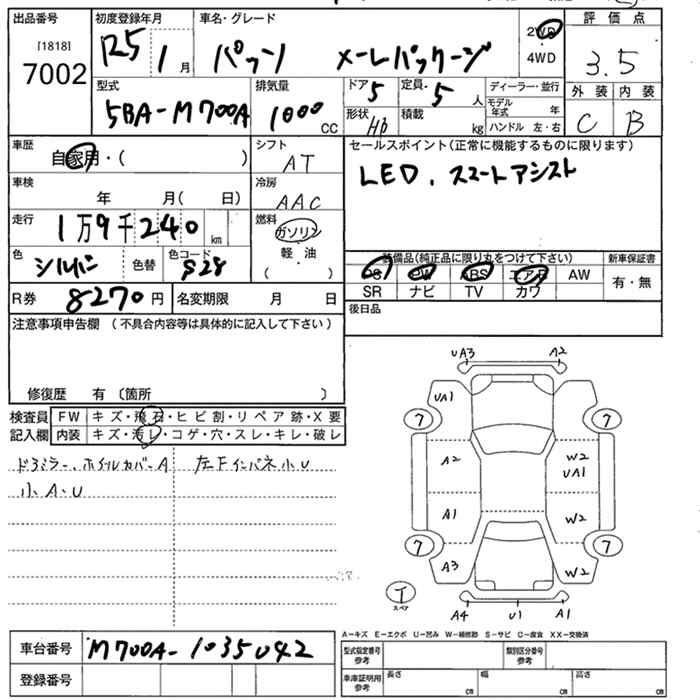 出品番号 初度登録年月 車名・グレード 評価点
[1818]
7002 R5 1月 パッソ 2WD 4WD 3.5
型式 排気量 ドア 5 定員 5 人 ディーラー・並行 外装 内装
5BA-M700A 1000 CC 形状 HB 積載 kg モデル年式 年 ハンドル 左・右 C B
車歴 自家用・( ) シフト AT セールスポイント(正常に機能するものに限ります)
LED、スマートアシスト
車検 年 月( 日) 冷房 AAC
走行 1万9千240km 燃料 ガソリン 軽・油 ( )
色 シルバー 色替 色コード S28
装備品(純正品に限り丸をつけて下さい) 新車保証書
PS PW ABS エアB AW 有・無
SR ナビ TV カワ
R券 8270円 名変期限 月 日 後日品
注意事項申告欄 (不具合内容等は具体的に記入して下さい)
修復歴 有 (箇所 )
検査員 FW キズ・飛石・ヒビ割・リペア跡・X要
記入欄 内装 キズ・汚レ・コゲ・穴・スレ・キレ・破レ
ドアミラー、ホイルカバーA 左Fインパネ小U
小A・U
UA3 A2
UA1
7 7
A2 W2
UA1
A1 W2
7 7
A3 W2
T
スペア
A4 U1 A1
A-キズ E-エクボ U-凹み W-補修跡 S-サビ C-腐食 XX-交換済
車台番号 M700A-1035042
登録番号
型式指定番号 参考 類別区分番号 参考
車庫証明用 参考 長さ cm 幅 cm 高さ cm